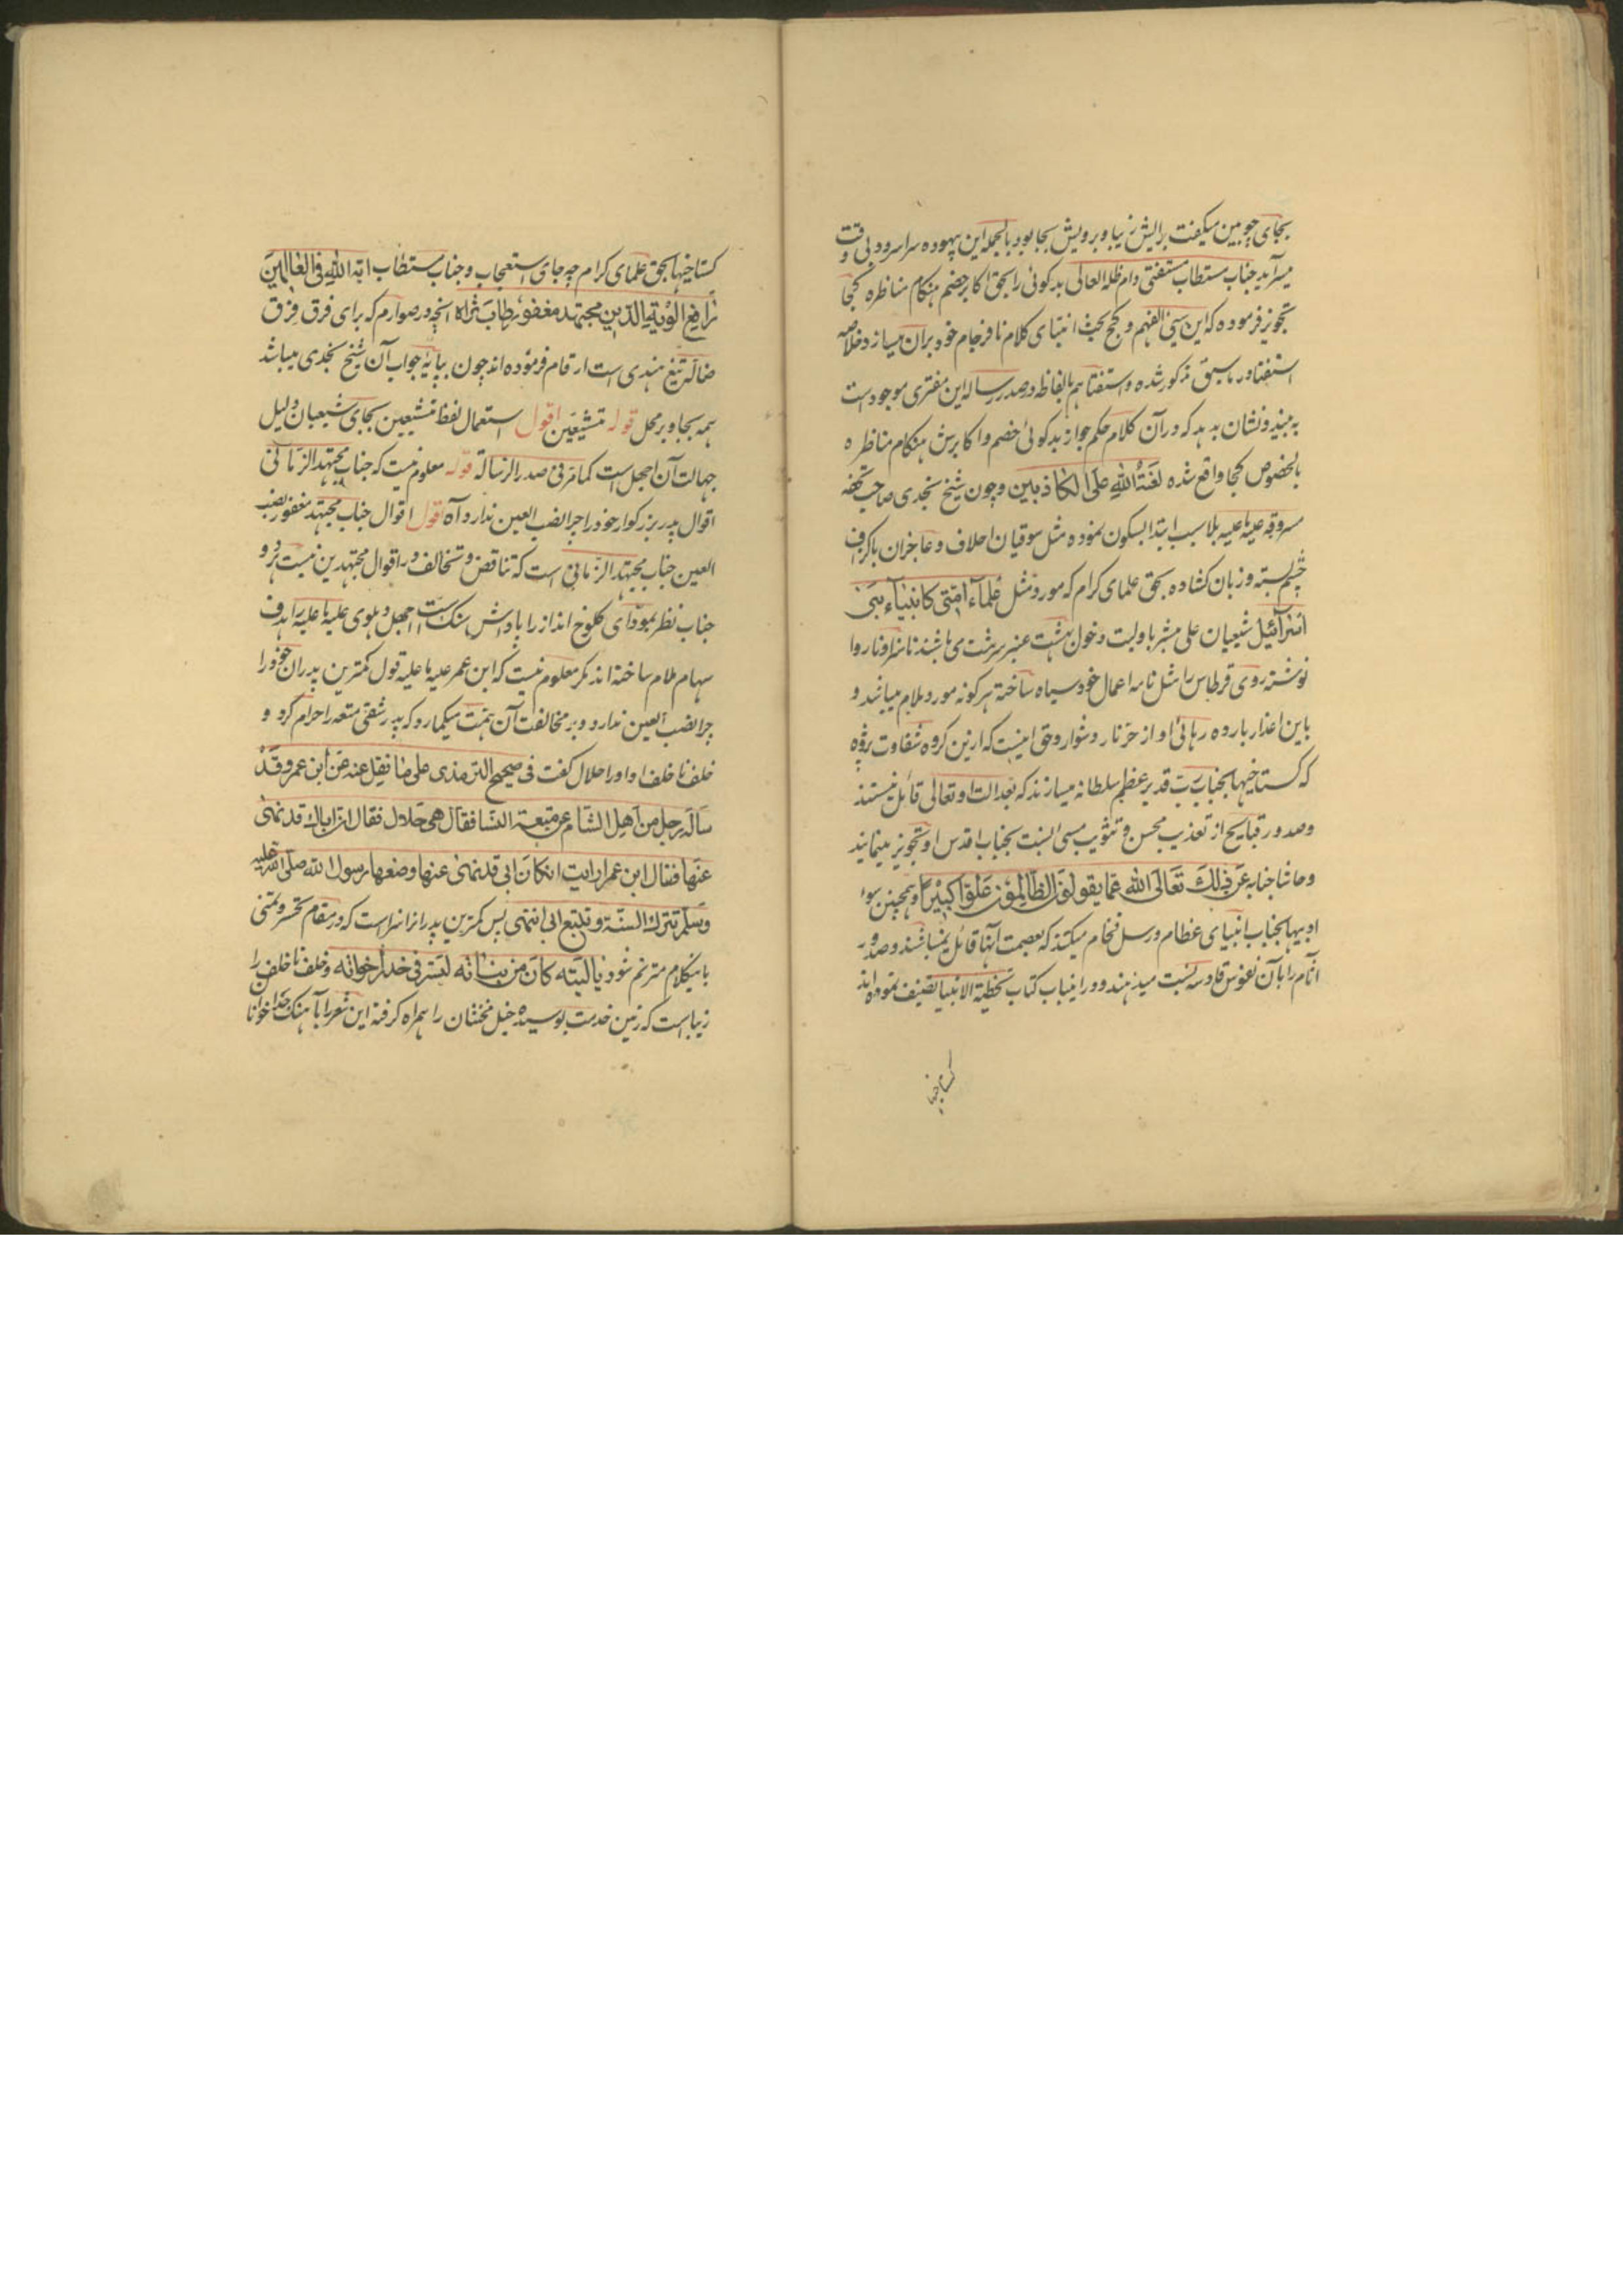 بجای چوبین میگفت برایش زیبا و برویش بجا بود بالجمله این بیهوده سرا سرود بی وقت
میسراید جناب مستطاب مستفتی دام ظله العالی بدکوئی را بحق اکابر خصم هنکام مناظره کجا
تجویز فرموده که این سیئ الفهم و کج بحث ابتنای کلام نافرجام خود بران میسازد خلاصه
استفتا در ما سبق مذکور شده و استفتا هم بالفاظه در صدر رساله این مفتری موجود است
به بیند و نشان بدهد که در آن کلام حکم جواز بدکوئی خصم و اکابرش هنکام مناظره
بالخصوص کجا واقع شده لعنة الله علی الکاذبین و چون شیخ نجدی صاحب تحفه
مسروقه علیه ما علیه بلا سبب ابتدا بسکون نموده مثل سوقیان اجلاف و عاجزان
چشم بسته و زبان کشاده بحق علمای کرام که مورد مثل علماء امتی کانبیاء بنی
اسرآئیل شیعیان علی مبشر باولیت دخول بهشت عنبر سرشت می باشند ناسزا و ناروا
نوشته روی قرطاس را مثل نامه اعمال خود سیاه ساخته هرکونه مورد ملام میباشد و
باین اعذار بارده رهائی او از حر نار دشوار و حق اینست که ازین کروه شقاوت پژوه
که کستاخیها بجناب رب قدیر عظم سلطانه میسازند که بعدالت او تعالی قائل نیستند
و صدور قبایح از تعذیب محسن و تثویب مسیئ النسبت بجناب اقدس او تجویز مینمایند
و حاشا جنابه عن ذلک تعالی الله عما یقولون الظالمون علوا کبیرا و همچنین سوء
ادبیها بجناب انبیای عظام و رسل فخام میکنند که بعصمت آنها قائل نمیباشند و صدور
آثام را بآن نفوس قادسه نسبت میدهند و درینباب کتاب تخطئة الانبیا تصنیف نموده اند
کستاخیها
کستاخیها بحق علمای کرام چه جای استعجاب و جناب مستطاب ایة الله فی العالمین
رافع الویة الدین مجتهد مغفور طاب ثراه آنچه در صوارم که برای فرق فرق
ضاله تیغ هندی است ارقام فرموده اند چون بپایه جواب آن شیخ نجدی میباشد
همه بجا و بر محل قوله متشیعین اقول استعمال لفظ متشیعین بجای شیعیان دلیل
جهالت آن اجهل است کما مر فی صدر الرسالة قوله معلوم نیست که جناب مجتهد الزمانی
اقوال پدر بزرکوار خود را چرا نصب العین ندارد آه اقول اقوال جناب مجتهد مغفور نصب
العین جناب مجتهد الزمانی است که تناقض و تخالف در اقوال مجتهدین نیست هر دو
جناب نظر بمودای کلوخ انداز را پاداش سنک است اجهل دهلوی علیه ما علیه را هدف
سهام ملام ساخته اند مکر معلوم نیست که ابن عمر علیه ما علیه قول کمترین پدران خود را
چرا نصب العین ندارد و بر مخالفت آن همت میکمارد که پدر شقی متعه را حرام کرد و
خلف نا خلف او اورا حلال کفت فی صحیح الترمذی علی ما نقل عنه عن ابن عمر و قد
ساله رجل من اهل الشام عن متعة النسا فقال هی حلال فقال ان اباک قد نهی
عنها فقال ابن عمر ارایت ان کان ابی قد نهی عنها و صنعها رسول الله صلی الله علیه
وسلم تترک السنة و تتبع ابی انتهی پس کمترین پدران را سزاست که در مقام تحسر و تمنی
باینکلام مترنم شود یا لیته کان من بناته لیستر فی خدر اخواته و خلف نا خلف را
زیباست که زمین خدمت بوسیده خیل مخنثان را همراه کرفته این شعر را بآهنک